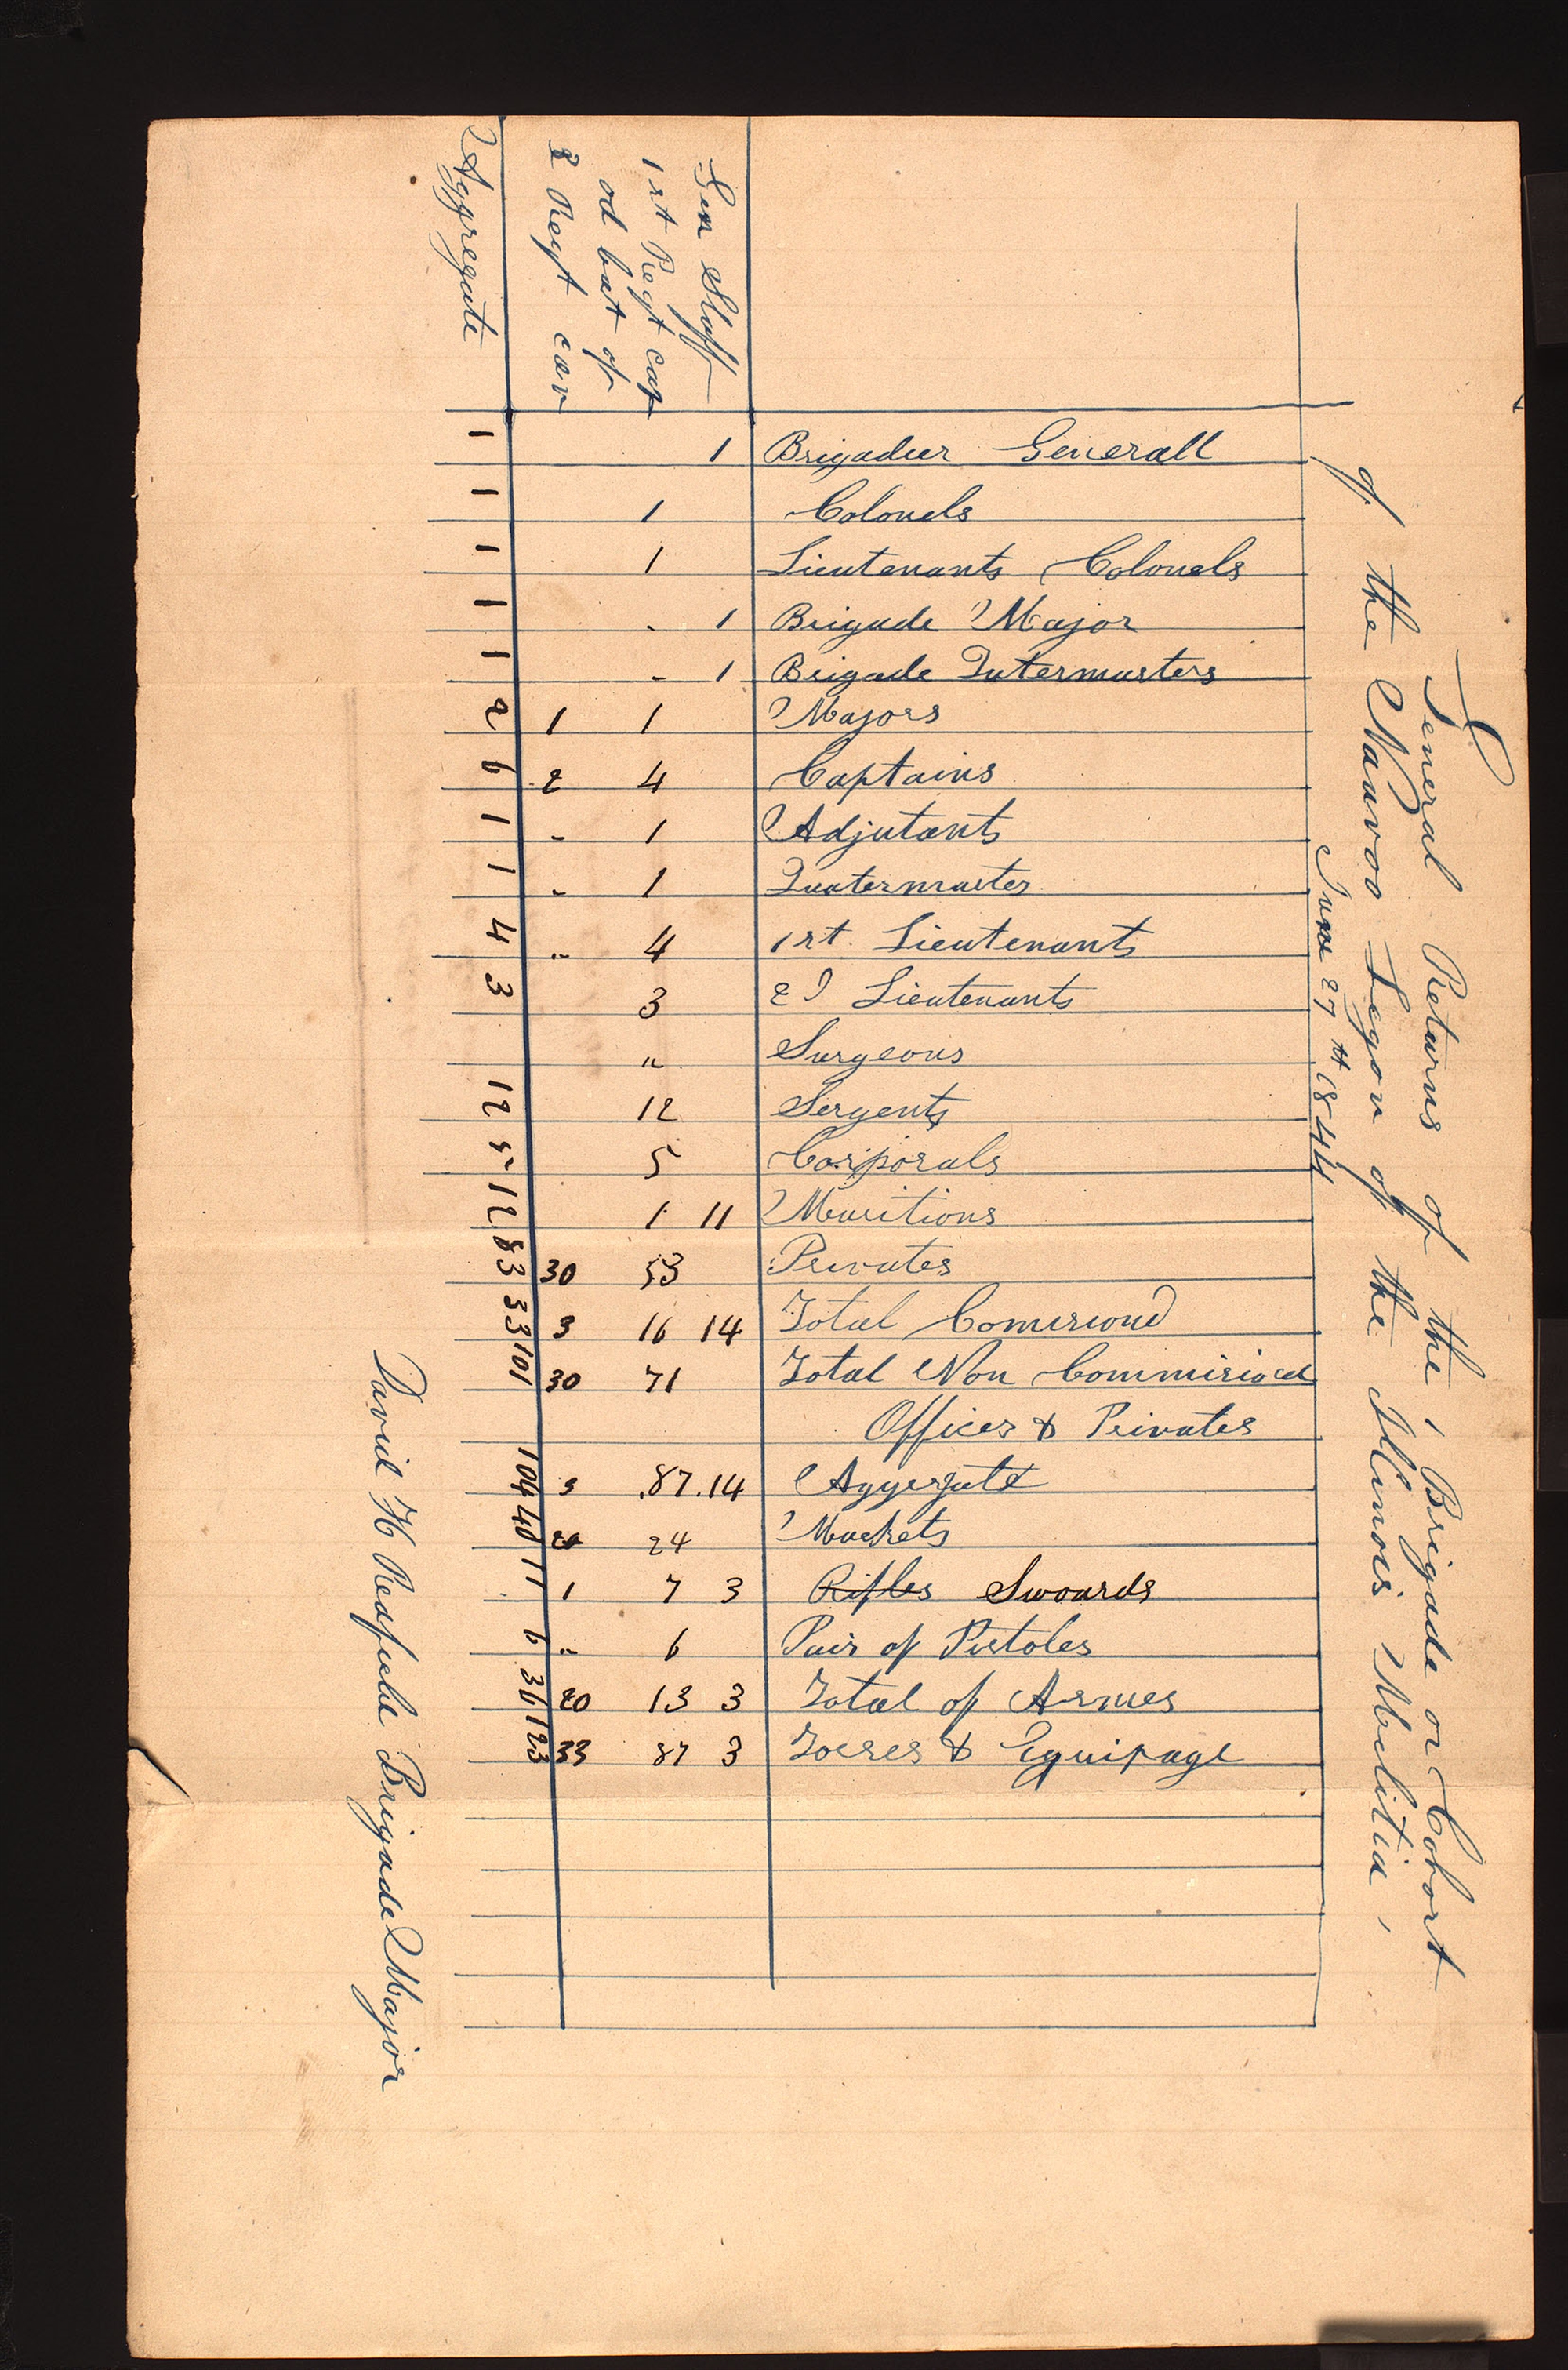 General Returns of the 1 Brigade or Cohort
of the Nauvoo Legon of the Illinois Melitia,
June 27th 1844
Brigadier Generall
Colonels
Lieutenants Colonels
Brigade Major
Brigade Qutermasters
Majors
Captains
Adjutants
Quatermaster
1st. Lieutenants
2d Lieutenants
Surgeons
Sergents
Corporals
Musitions
Privates
Total Comisiond
Total Non Commisiond
Offices & Privates
Aggergate
Muskets
Rifles Swoards
Pair of Pistoles
Total of Armes
& Equipage
Gen Staff 1 1 1 11 14 14 3 3 3
1st Regt cap
od bat of
1 1 - - 1 4 1 1 4 3 " 12 5 1 53 16 71 87 24 7 6 13 87
2 Regt cav 1 2 - - " 30 3 30 3 20 1 " 20 33
Aggregate 1 1 1 1 1 2 6 1 1 4 3 12 5 12 83 33 101 104 40 11 6 36 123
David H Redfield Brigade Major